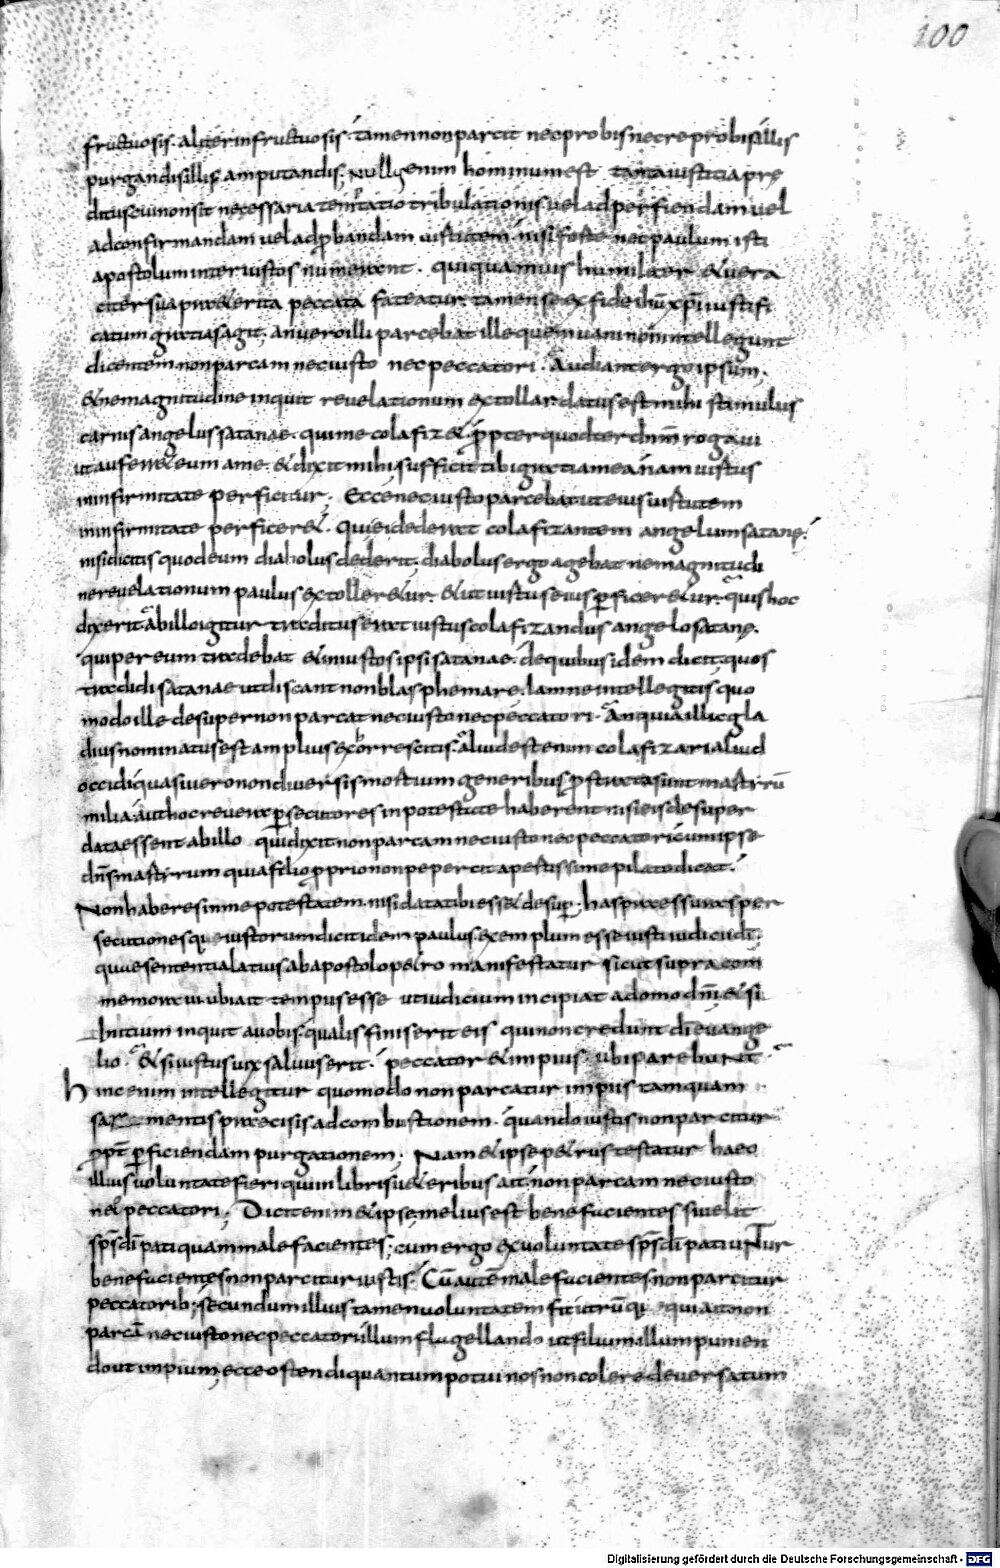 100
fructuosis. aliter infructuosis. tamen non parcit nec probis nec reprobis illis
purgandis illis amputandis; Nullus enim hominum est tanta iustitia pre
ditus cui non sit necessaria temptatio tribulationis vel ad perficiendam vel
ad confirmandam vel ad probandam uirtutem. nisi forte nec paulum isti
apostolum inter iustos numerent. qui quamuis humiliter & uera
citer sua praeterita peccata fateatur. tamen se ex fide ihu xpi iustifi
catum gratias agit; an uero illi parcebat ille quem uani non intellegunt
dicentem. non parcam nec iusto nec peccatori. Audiant ergo ipsum.
& ne magnitudine inquit revelationum extollar. datus est mihi stimulus
carnis angelus satanae. qui me colafiz&. propter quod ter dnm rogaui
ut auferr& eum a me. & dixit mihi sufficit tibi gratia mea nam uirtus
in infirmitate perficitur. Ecce nec iusto parcebat ut eius uirtutem
in infirmitate perficer&. Qui ei dederat colafizantem angelum satanę.
nisi dicitis quod eum diabolus dederit. diabolus ergo agebat ne magnitudi
ne revelationum paulus extoller&ur. & ut uirtus eius perficer&ur. quis hoc
dixerit ab illo igitur traditus erat iustus colafizandus angelo satanę.
qui per eum tradebat & iniustos ipsi satanae. de quibus idem dicit. quos
tradidi satanae ut discant non blasphemare. Iamne intellegitis quo
modo ille desuper non parcat nec iusto nec peccatori. An quia illic gla
dius nominatus est amplius exhorrescitis. aliud est enim colafizari aliud
occidi quasi uero non diuersis mortium generibus prostrata sunt martirum
milia. aut hoc revera persecutores in potestate haberent nisi eis desuper
data essent ab illo qui dixit non parcam nec iusto nec peccatori cum ipse
dns martirum quia filio proprio non pepercit apertissime pilato dicat.
Non haberes in me potestatem. nisi data tibi ess& desuper. has praessuras per
secutionesque iustorum dicit idem paulus. exemplum esse iusti iudicii di.
quae sententia latius ab apostolo p&ro manifestatur sicut supra com
memoraui. ubi ait tempus esse ut iudicium incipiat a domo dni & si
Initium inquit a uobis. qualis finis erit eis qui non credunt di evange
lio. & si iustus uix saluus erit. peccator & impius. ubi parebunt
hinc enim intellegitur quomodo non parcatur impiis tamquam
sarmentis praecisis ad combustionem. quando iustis non parcitur
propt perficiendam purgationem. Nam & ipse p&rus testatur haec
illius uoluntate fieri qui in libris u&eribus ait. non parcam nec iusto
nec peccatori. Dicit enim & ipse. melius est benefacientes si uelit
sps di pati quam malefacientes; cum ergo ex uoluntate sps di patiuntur
benefacientes non parcitur iustis. Cu aute malefacientes non parcitur
peccatorib; secundum illius tamen uoluntatem fit utrumque qui ait non
parca nec iusto nec peccatori illum flagellando ut filium illum punien
do ut impium; ecce ostendi quantum potui nos non colere deversatum
Digitalisierung gefördert durch die Deutsche Forschungsgemeinschaft - DFG